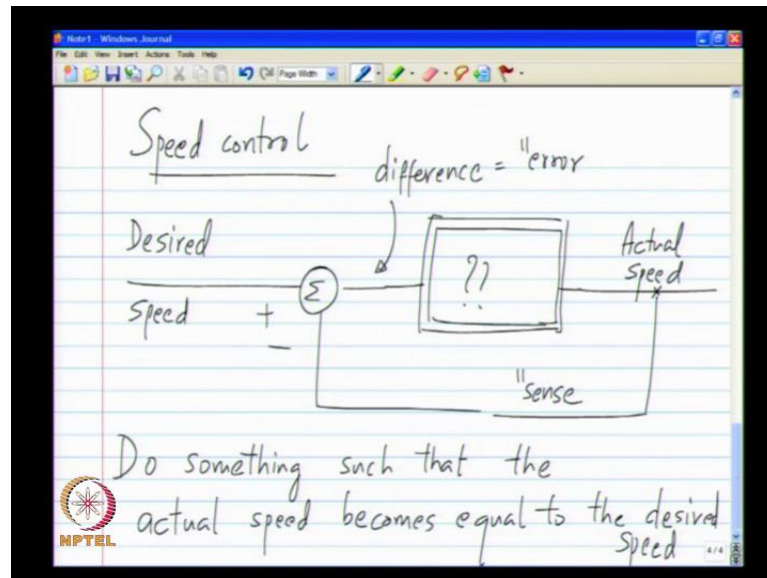 Note1 - Windows Journal
File Edit View Insert Actions Tools Help
Page Width
Speed control
difference = "error
Desired
Speed
+
−
Σ
??
Actual
Speed
"sense
Do something such that the
actual speed becomes equal to the desired
Speed
NPTEL
4/4